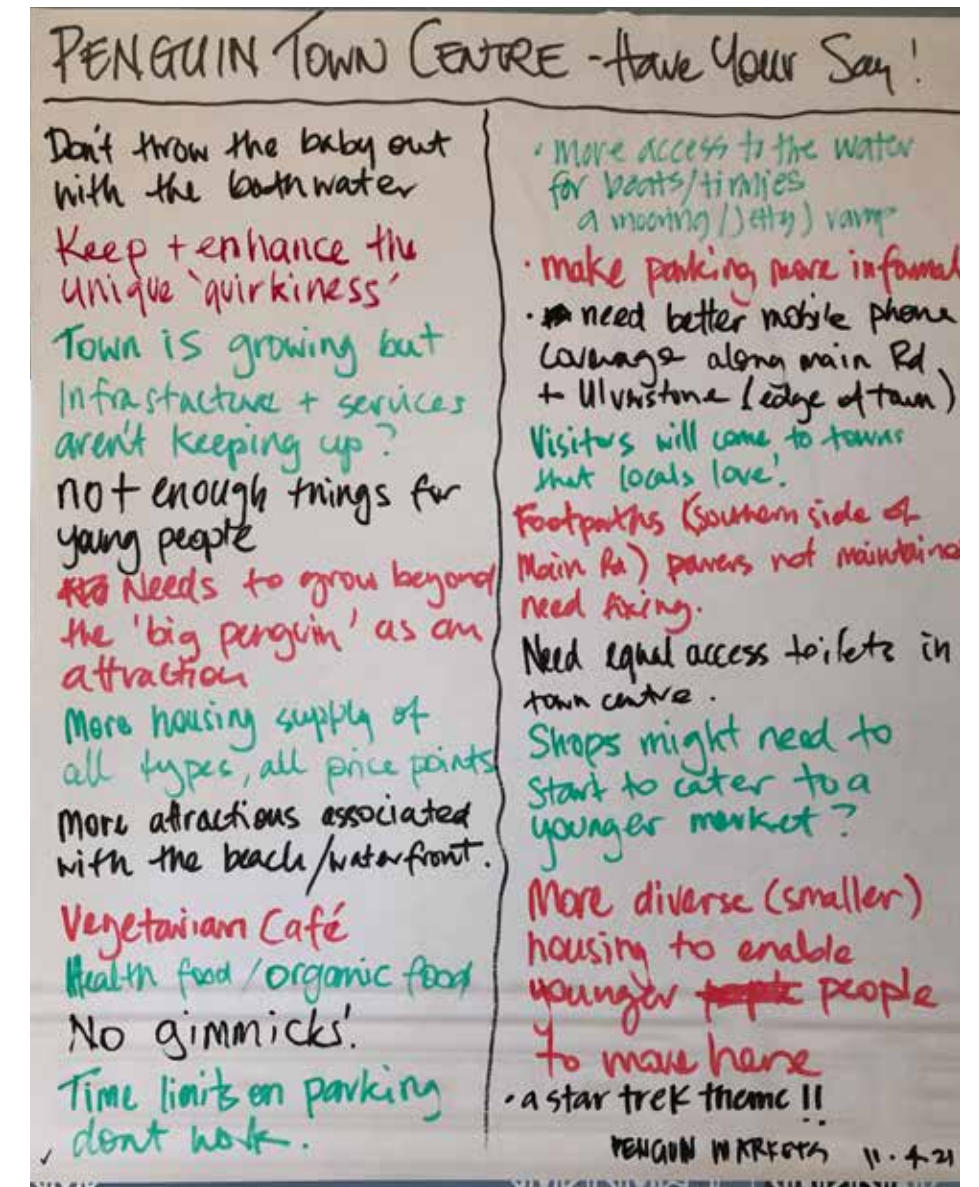 PENGUIN TOWN CENTRE - Have Your Say!
Don't throw the baby out
with the bathwater
Keep + enhance the
unique 'quirkiness'
Town is growing but
Infrastacture + services
aren't keeping up?
not enough things for
young people
Needs to grow beyond
the 'big penguin' as an
attraction
More housing supply of
all types, all price points
More attractions associated
with the beach/waterfront.
Vegetarian Café
Health food/organic food
No gimmicks!
Time limits on parking
dont work.
• More access to the water
for boats/tinnies
a mooring/jetty) ramp
• make parking more informal
• need better mobile phone
coverage along main Rd
to Ulverstone (edge of town)
Visitors will come to towns
that locals love!
Footpaths (southern side of
Main Rd) pavers not maintained
need fixing.
Need equal access toilets in
town centre.
Shops might need to
start to cater to a
younger market?
More diverse (smaller)
housing to enable
younger people
to move here
• a star trek theme!!
PENGUIN MARKETS 11.4.21